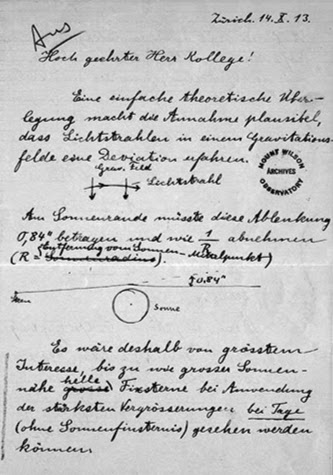 Aus
Zürich. 14. X. 13.
Hoch geehrter Herr Kollege!
Eine einfache theoretische Über-
legung macht die Annahme plausibel,
dass Lichtstrahlen in einem Gravitations-
felde eine Deviation erfahren.
Grav. Feld
Lichtstrahl
MOUNT WILSON
ARCHIVES
OBSERVATORY
Am Sonnenrande müsste diese Ablenkung
0,84" betragen und wie 1/R abnehmen
(R = Sonnenradius). Entfernung vom Sonnen-Mittelpunkt)
0.84"
Stern
Sonne
Es wäre deshalb von grösstem
Interesse, bis zu wie grosser Sonnen-
nähe grosse helle Fixsterne bei Anwendung
der stärksten Vergrösserungen bei Tage
(ohne Sonnenfinsternis) gesehen werden
können.